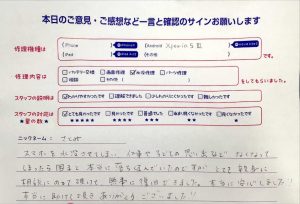 本日のご意見・ご感想など一言と確認のサインお願いします
修理機種は
iPhone
Android Xperia 5 Ⅲ
iPad
その他
修理内容は
バッテリー交換 画面修理 水没修理 パーツ修理
その他
をしてもらいました。
スタッフの説明は
わかりやすかったです 理解できました 少しわかりにくかったです 難しかったです
スタッフの対応は
とても良かったです 良かったです 普通でした
★の数★
★★★★★ ★★★★ ★★★ ★★ ★
ニックネーム:
スマホを水没させてしまい、仕事や子どもの思い出など なくなって
しまったら困ると本当に
相談にのって頂けて、無事に復旧できました。本当に安心しました!!
本当に助けて頂きありがとうございました!!